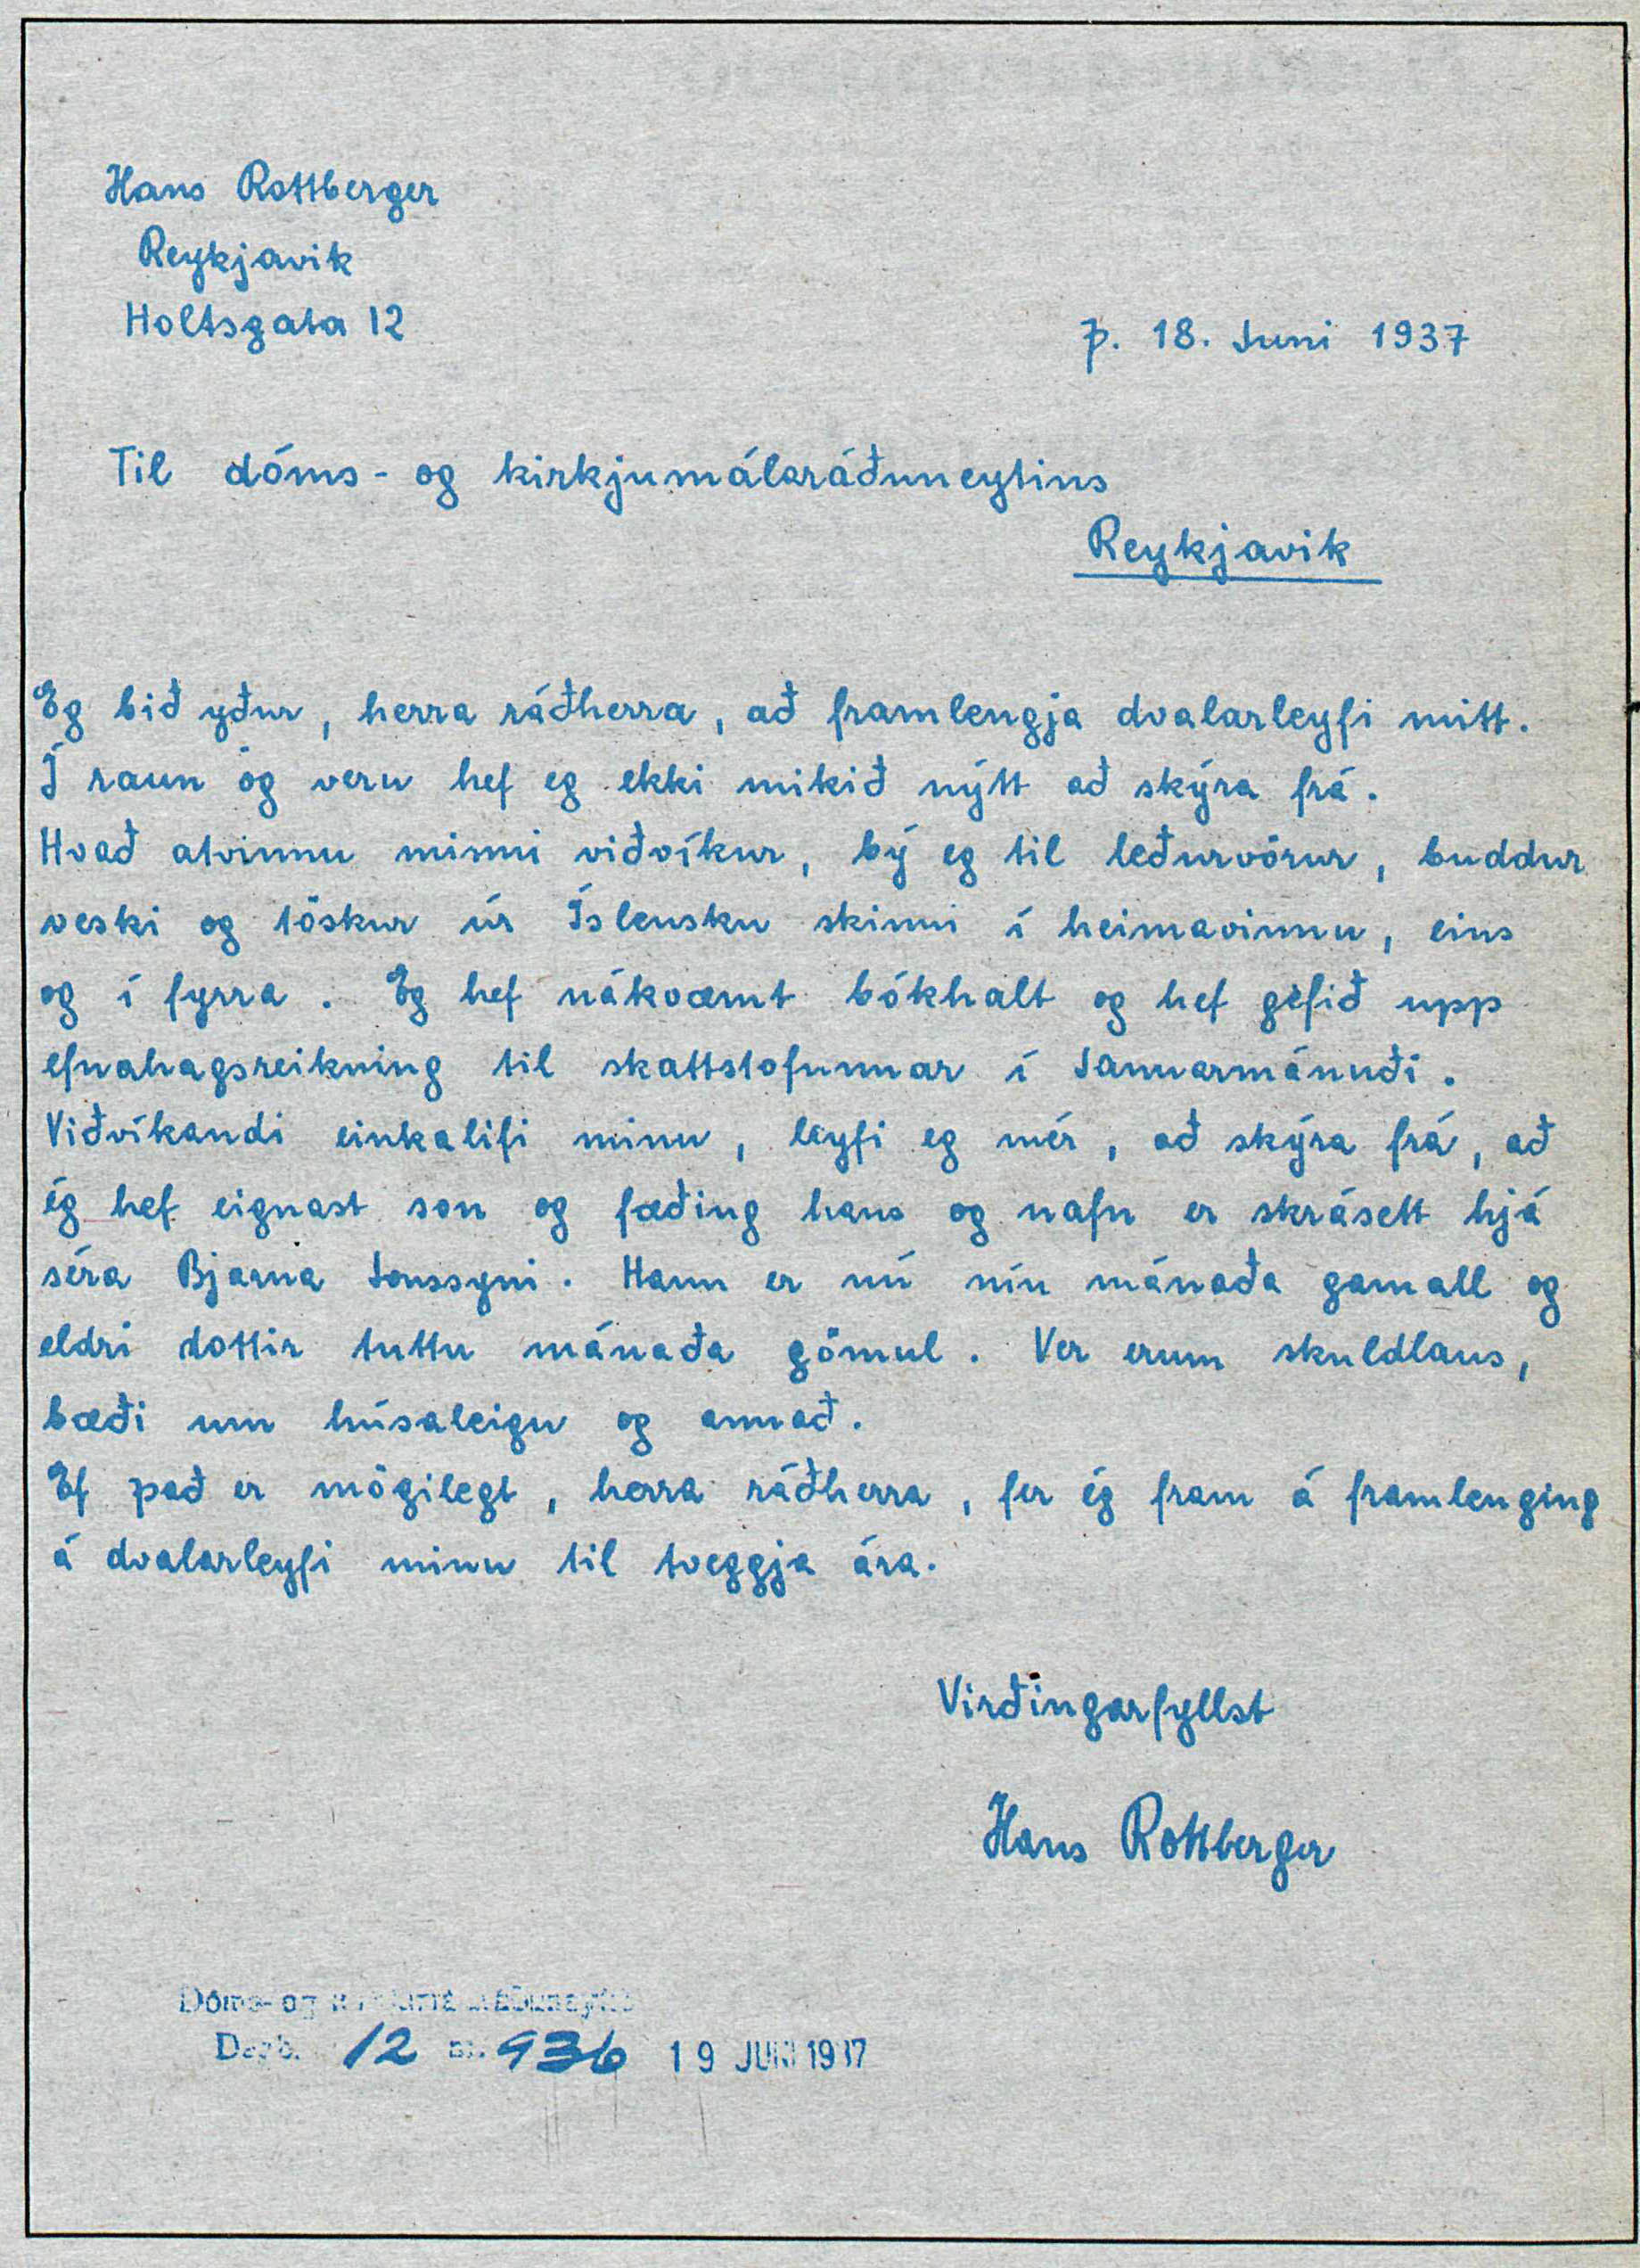 Hans Rottberger
Reykjavik
Holtsgata 12
þ. 18. Juni 1937
Til dóms- og kirkjumálaráðuneytins
Reykjavik
Eg bið yður, herra ráðherra, að framlengja dvalarleyfi mitt.
Í raun og veru hef eg ekki mikið nýtt að skýra frá.
Hvað atvinnu minni viðvíkur, bý eg til leðurvörur, buddur
veski og töskur úr Íslensku skinni í heimavinnu, eins
og í fyrra. Eg hef nákvæmt bókhalt og hef gefið upp
efnahagsreikning til skattstofunnar í Januarmánuði.
Viðvíkandi einkalifi minu, leyfi eg mér, að skýra frá, að
ég hef eignast son og fæðing hans og nafn er skrásett hjá
séra Bjarna Jonssyni. Hann er nú níu mánaða gamall og
eldri dottir tuttu mánaða gömul. Ver erum skuldlaus,
bæði um húsaleigu og annað.
Ef það er mögilegt, herra ráðherra, fer ég fram á framlenging
á dvalarleyfi minu til tveggja ára.
Virðingarfyllst
Hans Rottberger
Dóms- og
Dagb. 12 nr. 936 19 JUNI 1937